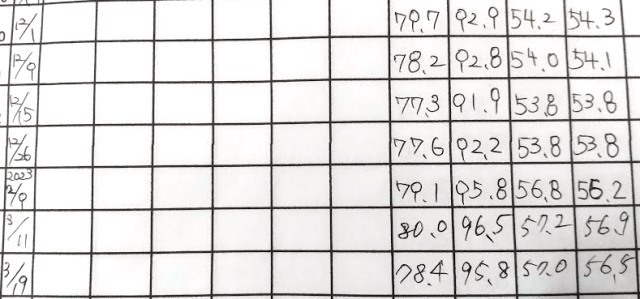 12/1 79.7 92.9 54.2 54.3
12/9 78.2 92.8 54.0 54.1
12/15 77.3 91.9 53.8 53.8
12/26 77.6 92.2 53.8 53.8
2023 2/9 79.1 95.8 56.8 56.2
3/11 80.0 96.5 57.2 56.9
3/19 78.4 95.8 57.0 56.5